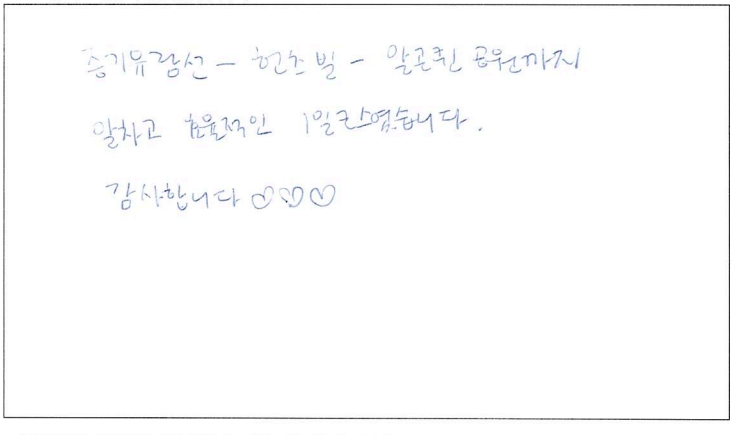 증기유람선 - 헌츠빌 - 알곤퀸 공원까지
알차고 효율적인 1일코스였습니다.
감사합니다 ♡♡♡